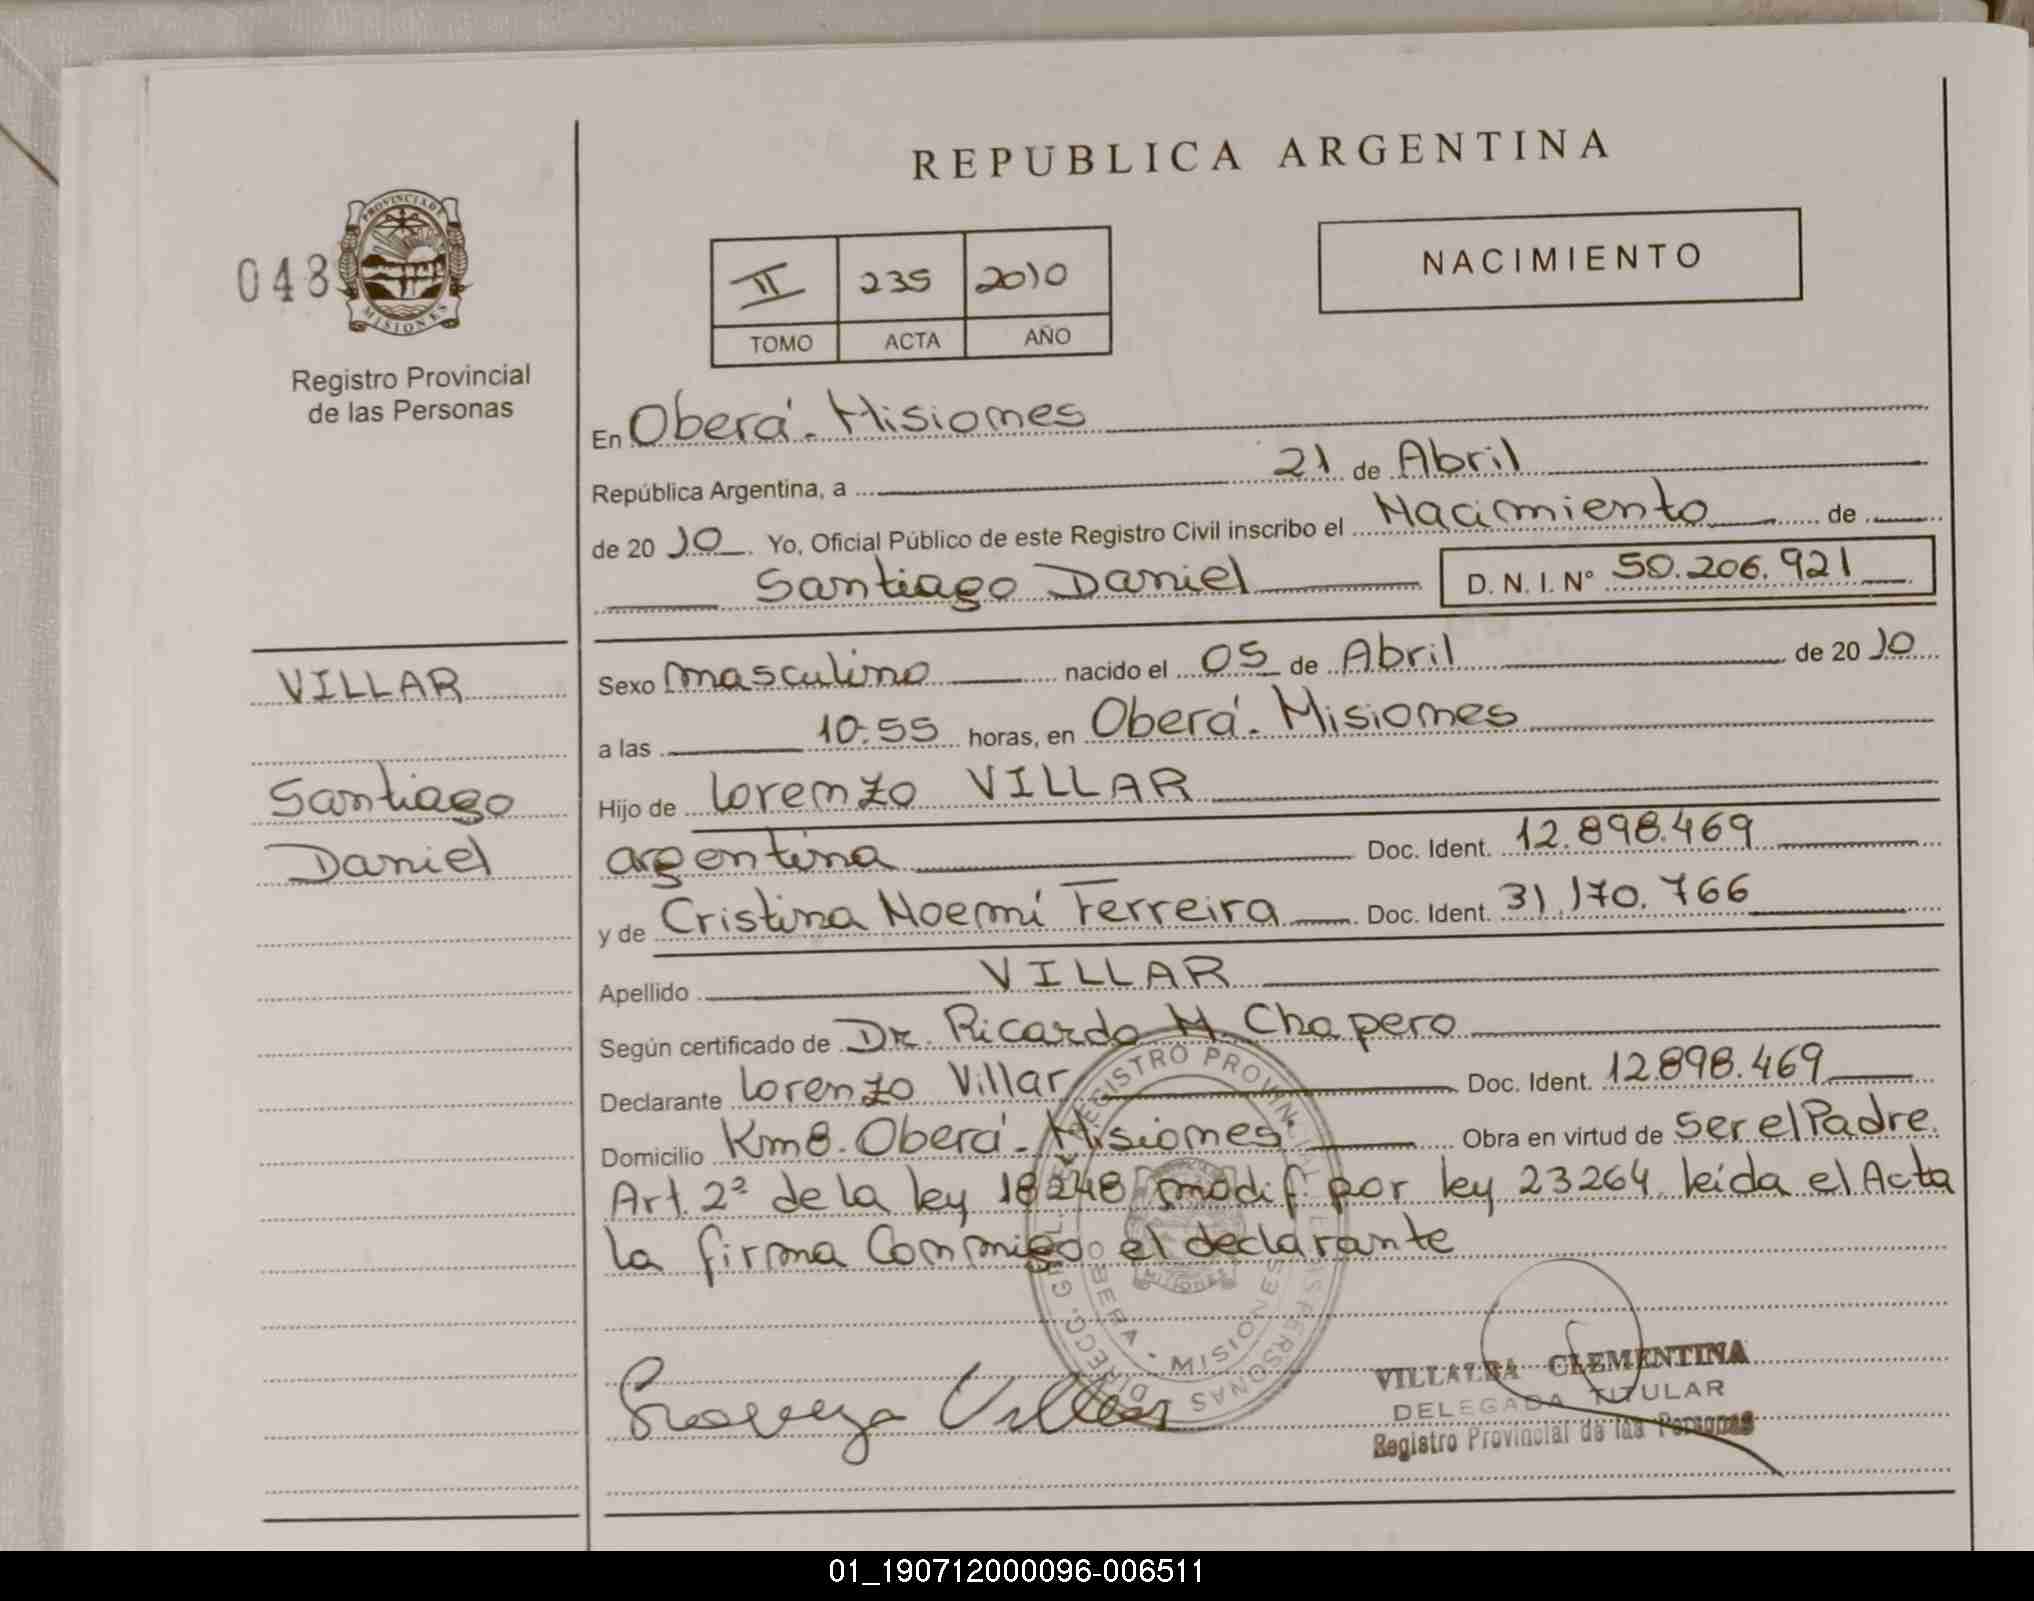 REPUBLICA ARGENTINA
048
PROVINCIA DE
MISIONES
Registro Provincial
de las Personas
II 235 2010
TOMO ACTA AÑO
NACIMIENTO
En Oberá - Misiones
República Argentina, a 21 de Abril
de 2010. Yo, Oficial Público de este Registro Civil inscribo el Nacimiento de
Santiago Daniel D. N. I. N° 50.206.921
VILLAR
Santiago
Daniel
Sexo masculino nacido el 05 de Abril de 2010
a las 10:55 horas, en Oberá - Misiones
Hijo de Lorenzo VILLAR
argentina Doc. Ident. 12.898.469
y de Cristina Noemí Ferreira Doc. Ident. 31.170.766
Apellido VILLAR
Según certificado de Dr. Ricardo M. Chapero
Declarante Lorenzo Villar Doc. Ident. 12.898.469
Domicilio Km 8. Oberá - Misiones Obra en virtud de Ser el Padre.
Art. 2º de la ley 18248 modif por ley 23264. leída el Acta
la firma Conmigo el declarante
REGISTRO PROVINCIAL DE LAS PERSONAS
OBERA - MISIONES
MISIONES
VILLALBA CLEMENTINA
DELEGADA TITULAR
Registro Provincial de las Personas
01_190712000096-006511